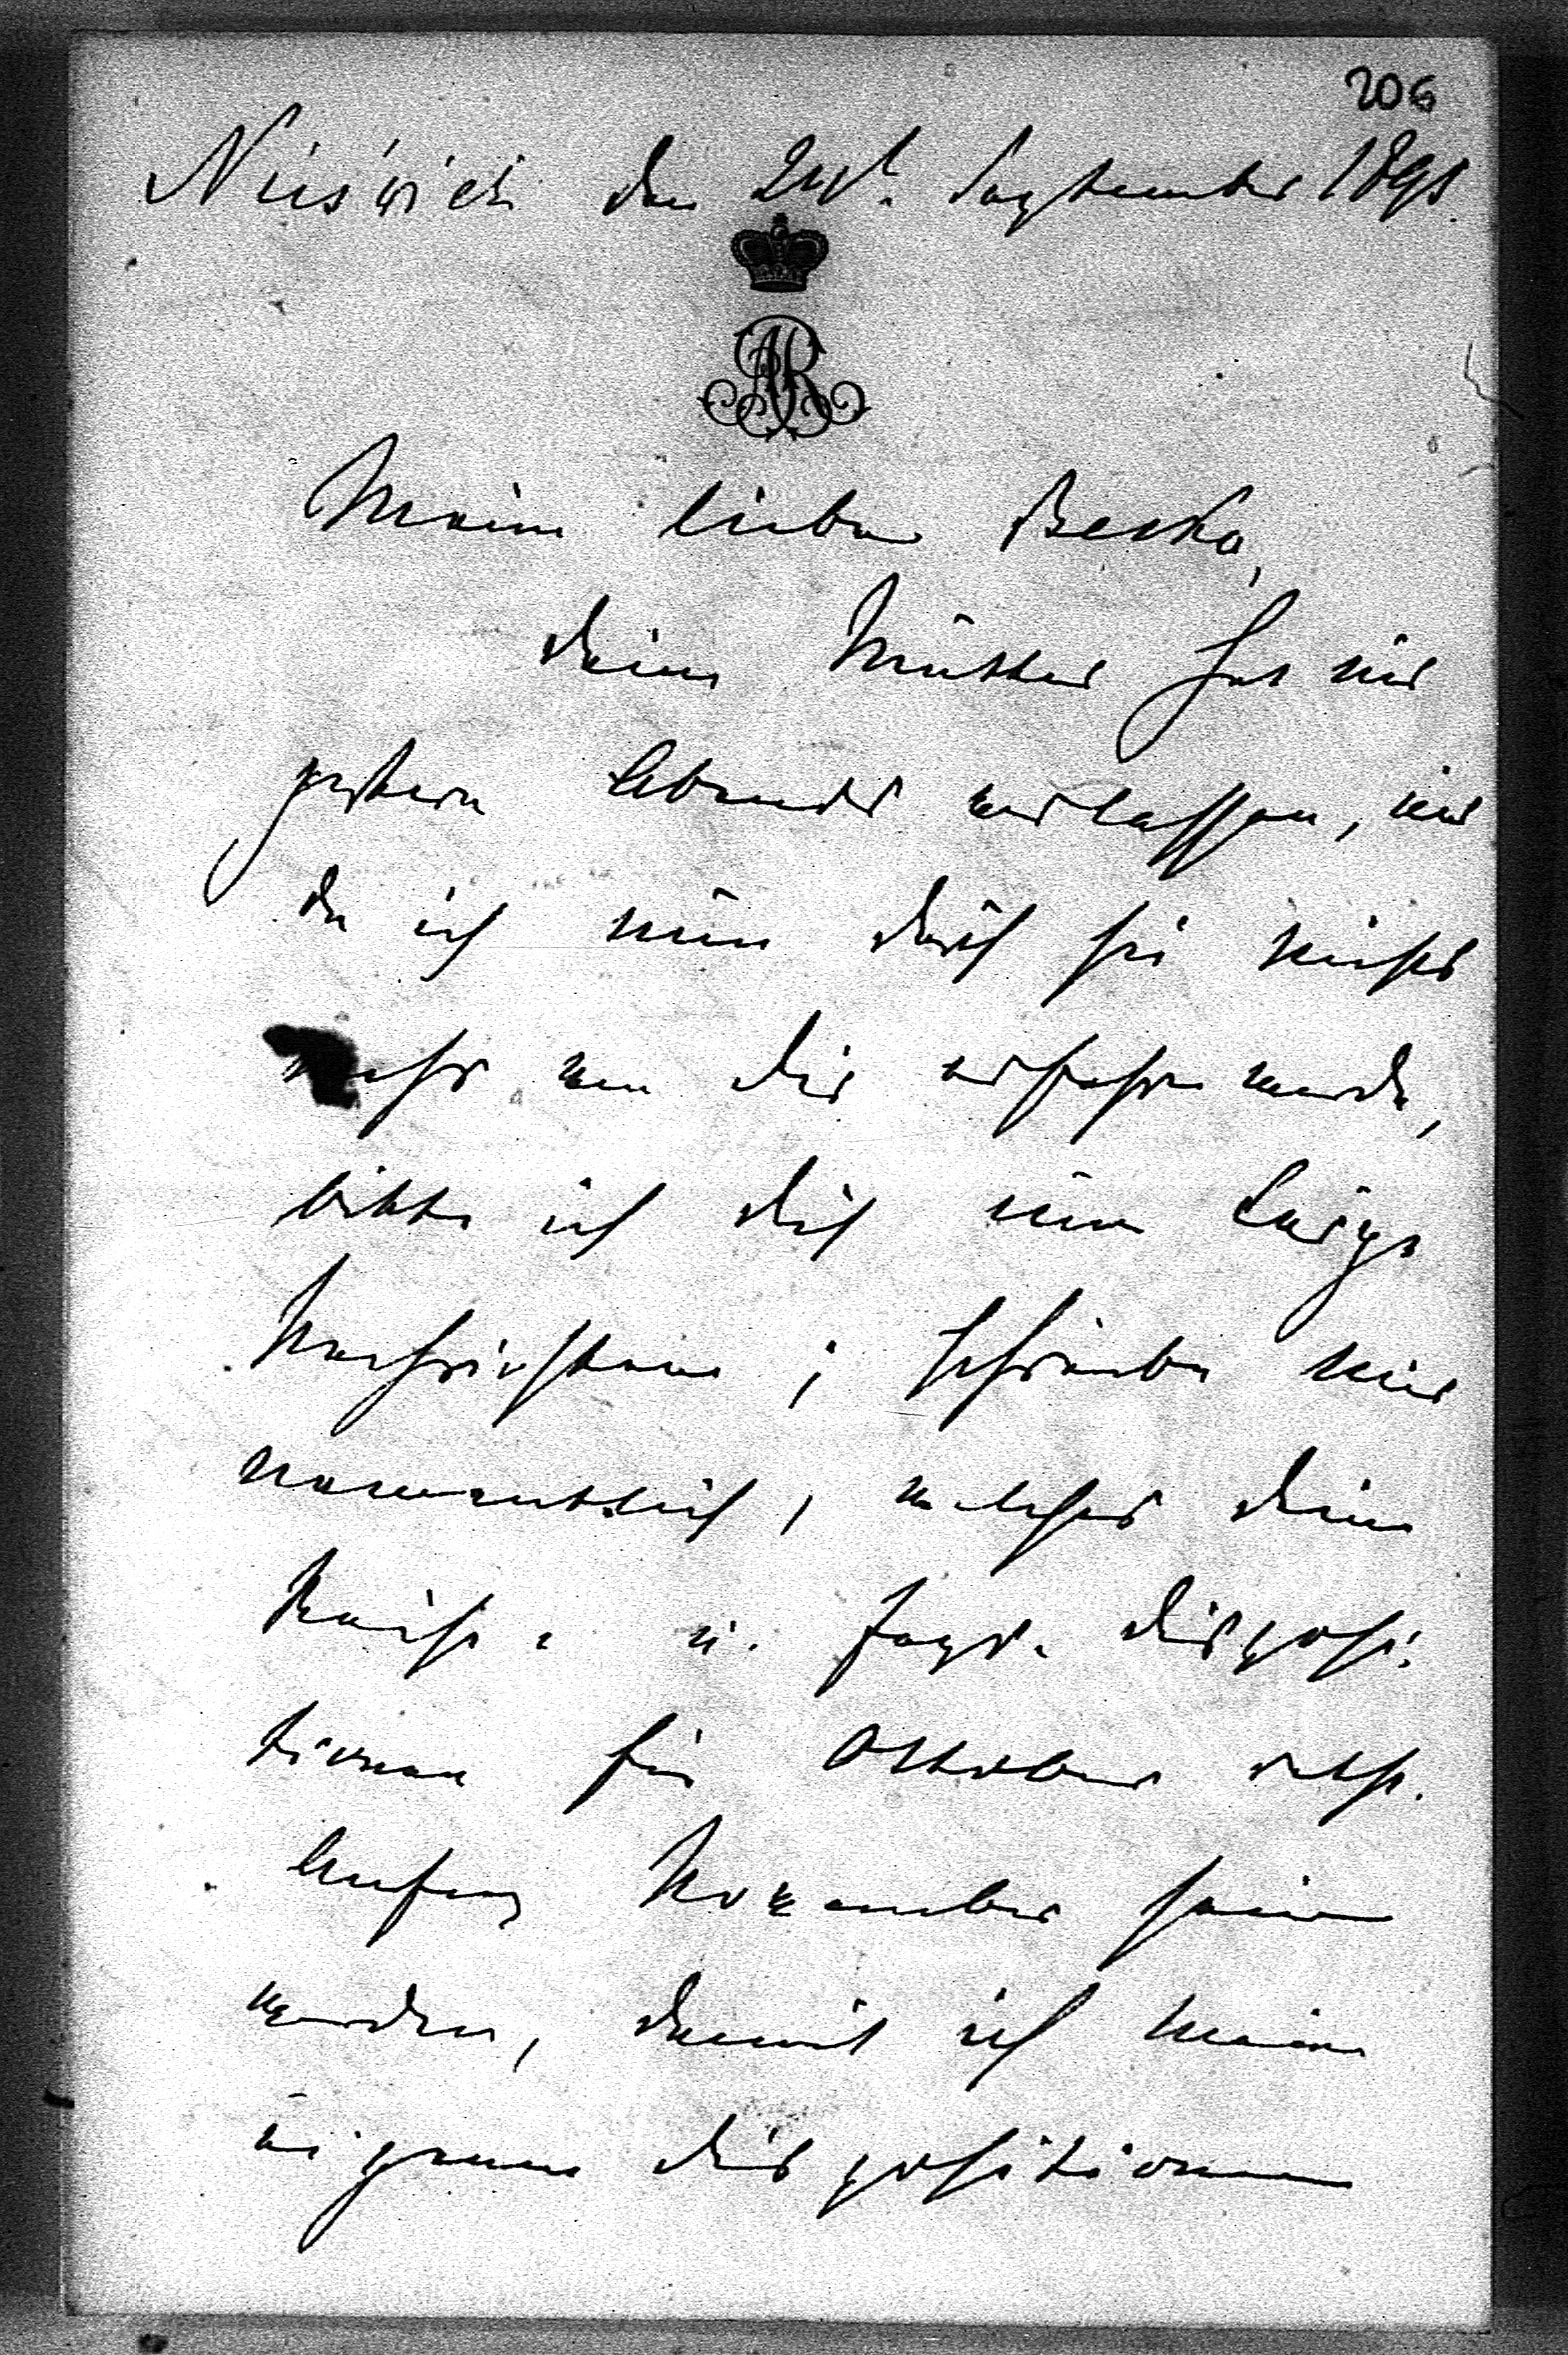 206
Nieświeź den 24t. September 1898.
AR
Meine liebe Beska,
deine Mutter hat mir
gestern Abends verlassen, und
da ich nun durch sie nichts
mehr von dir erfahren werde,
bitte ich dich um kurze
Nachrichten; schreibe mir
namentlich, welches deine
Reise- u. Jagd- disposi-
tionen für October resp.
Anfang November sein
werden, damit ich meine
eigenen dispositionen